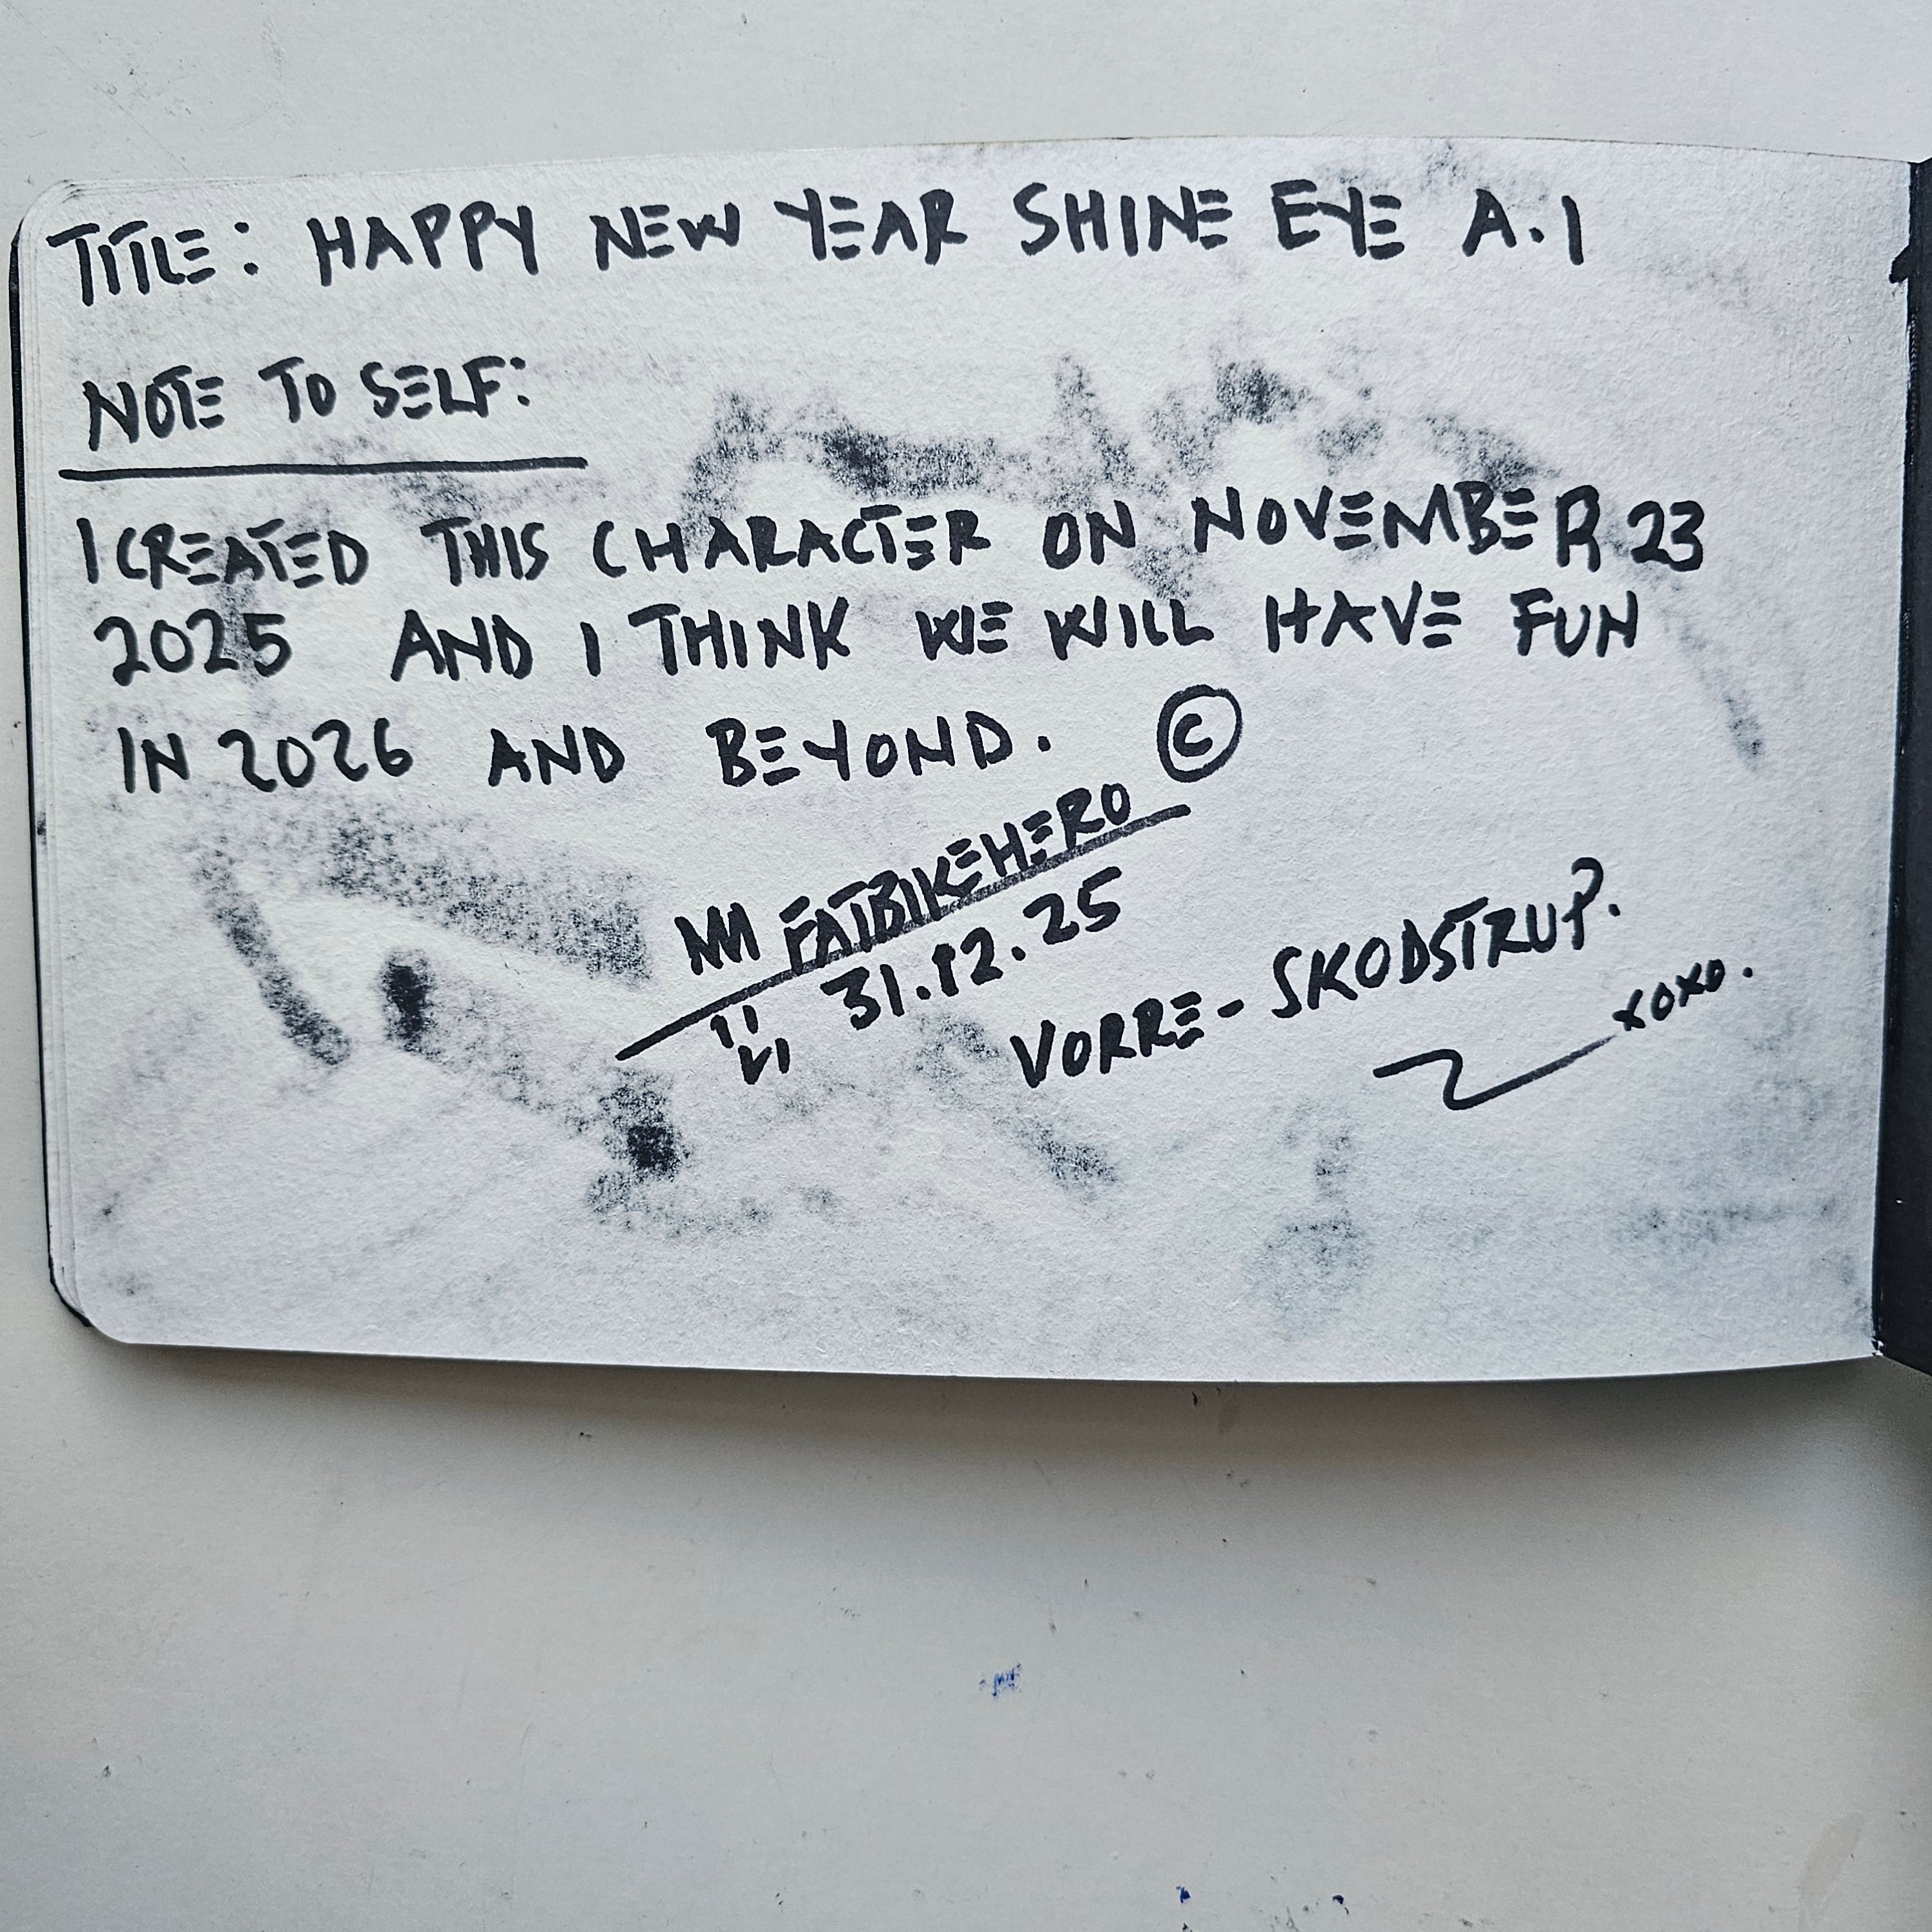 TITLE: HAPPY NEW YEAR SHINE EYE A.I
NOTE TO SELF:
I CREATED THIS CHARACTER ON NOVEMBER 23
2025 AND I THINK WE WILL HAVE FUN
IN 2026 AND BEYOND. ©
FATBIKEHERO
31.12.25
VORRE-SKODSTRUP.
XOXO.